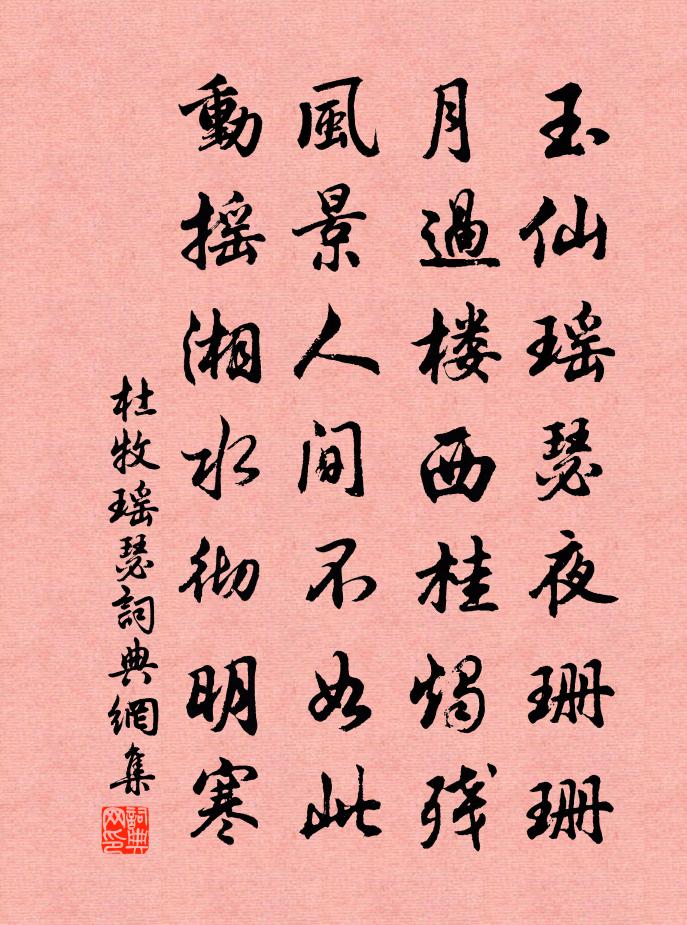 玉仙瑶瑟夜珊珊
月過楼西桂燭残
風景人间不如此
動摇湘水彻明寒
杜牧瑶瑟詞典網集
詞典网印